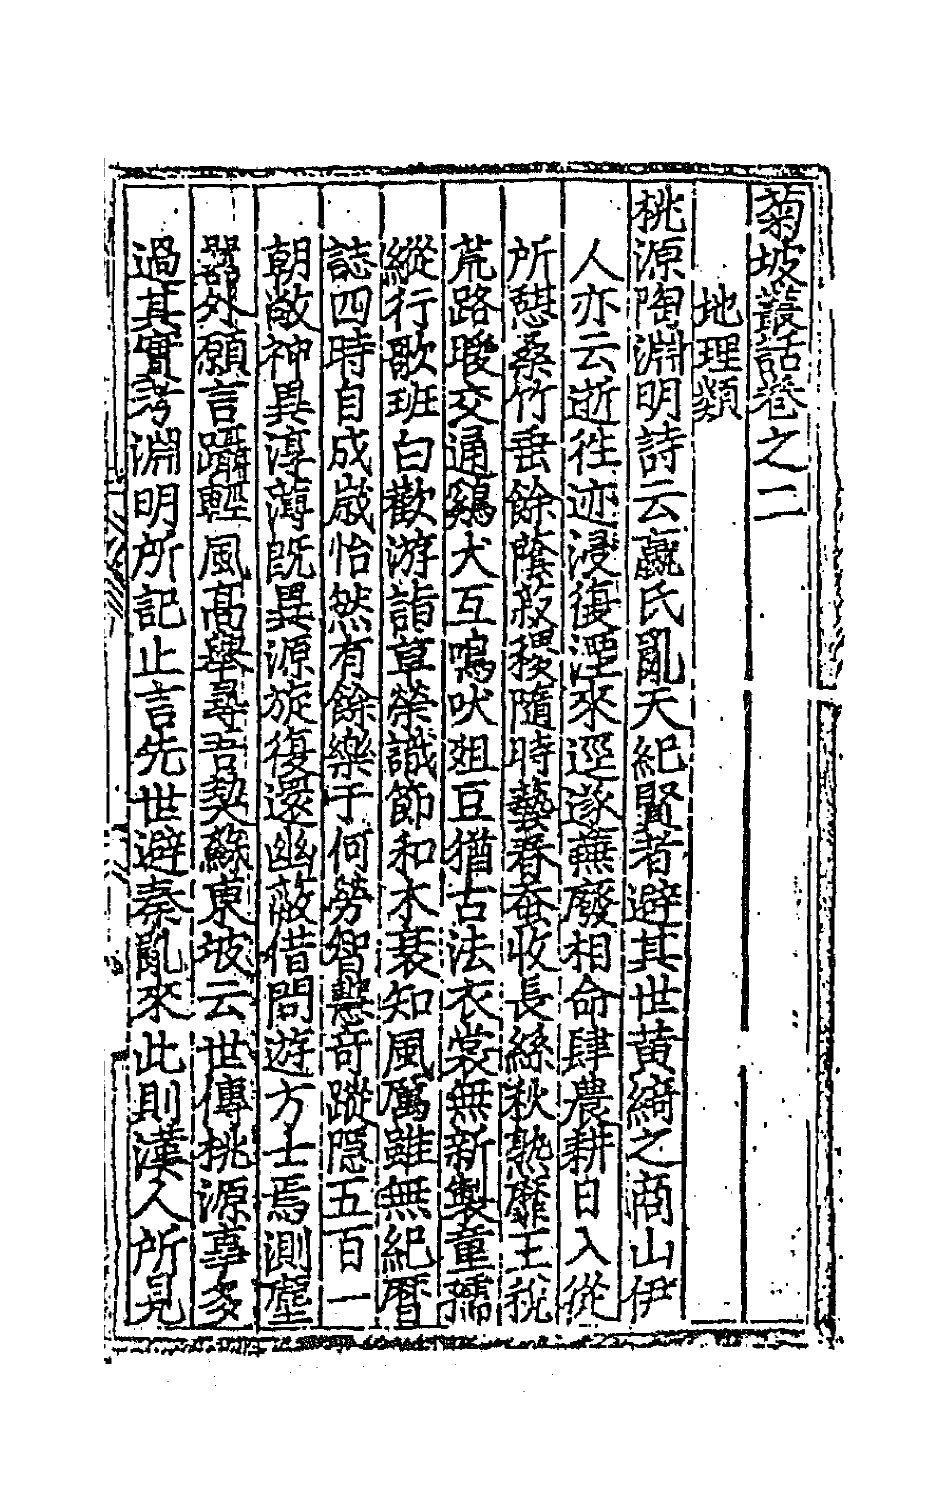 菊坡叢話卷之二
地理類
桃源陶淵明詩云嬴氏亂天紀賢者避其世黄綺之商山伊
人亦云逝徃迹浸復湮來逕遂蕪廢相命肆農耕日入從
所憇桑竹垂餘蔭菽稷隨時藝春蚕收長絲秋熟靡王税
荒路曖交通鷄犬互鳴吠爼豆猶古法衣裳無新製童孺
縱行歌班白歡游詣草榮識節和木衰知風厲雖無紀曆
誌四時自成嵗怡然有餘樂于何勞智慧竒蹤隱五百一
朝敞神異淳薄既異源旋復還幽蔽借問遊方士焉測塵
囂外願言躡輕風髙舉尋吾契蘇東坡云世傳桃源事多
過其實考淵明所記止言先世避秦亂來此則漢人所見